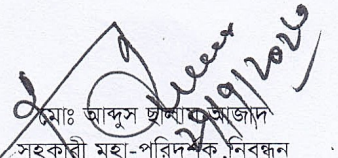 ২০/৭/২০২০
মোঃ আব্দুস ছালাম আজাদ
সহকারী মহা-পরিদর্শক নিবন্ধন